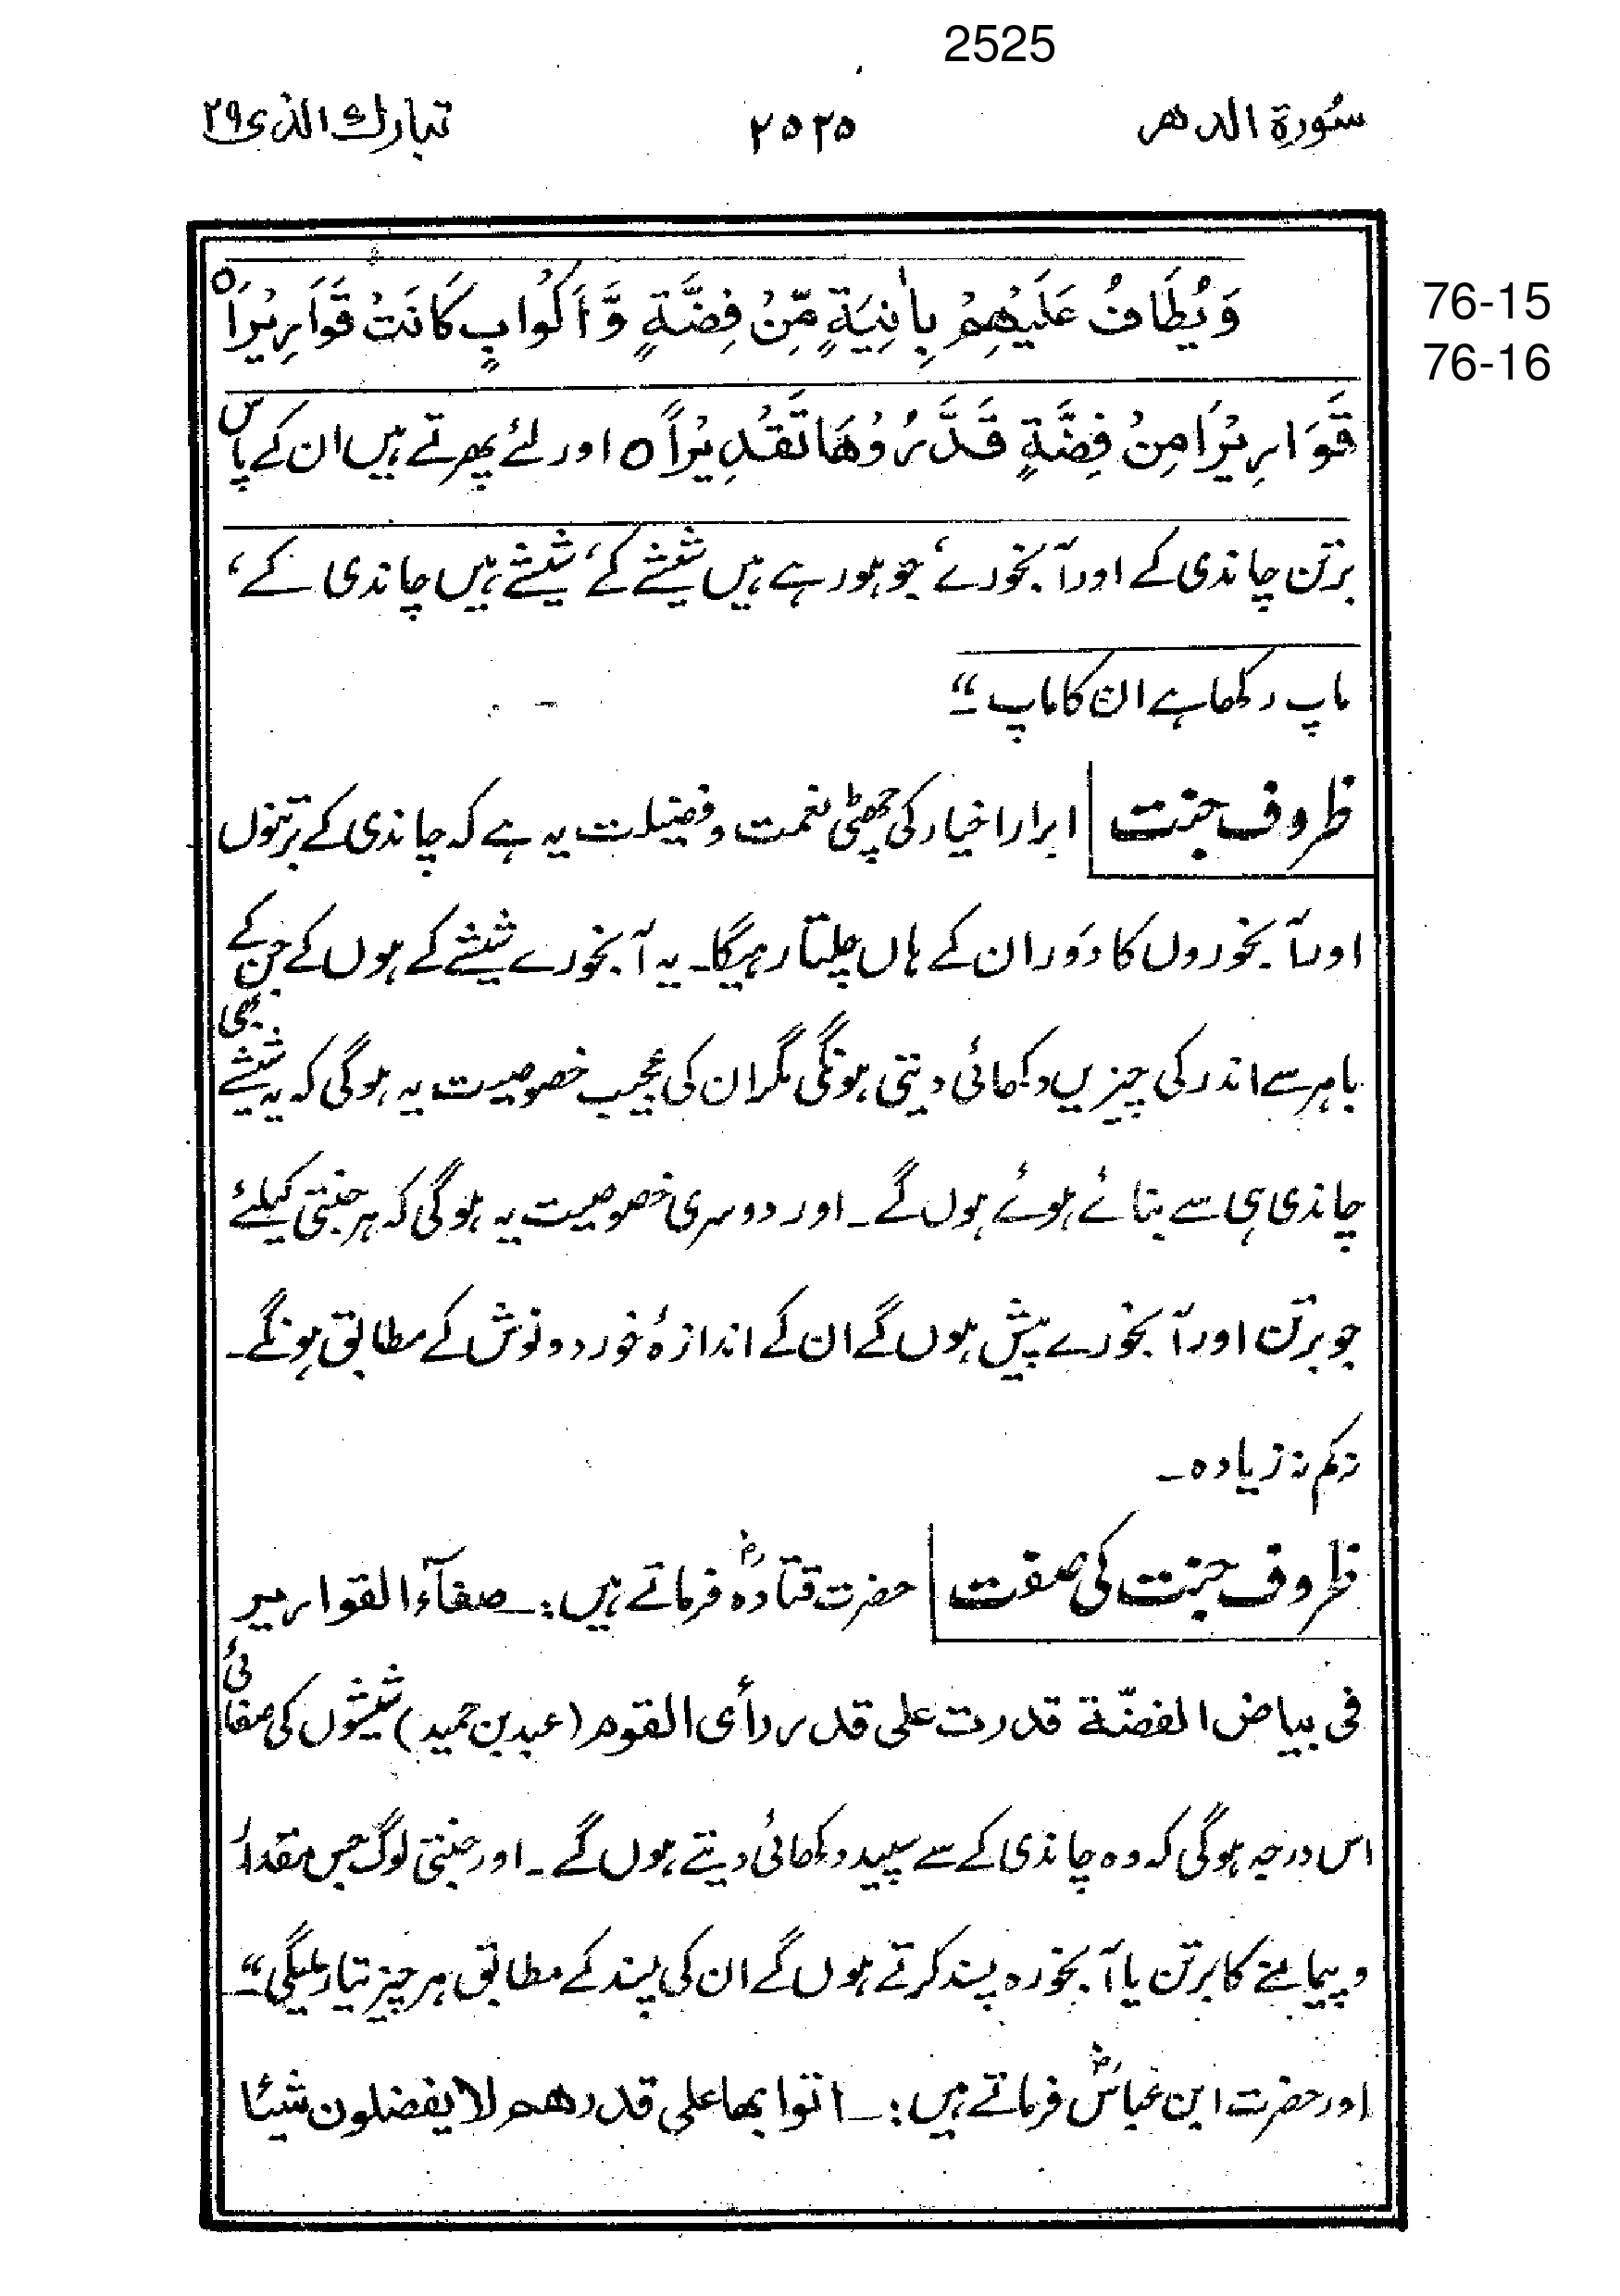 2525
سُورة الدهر ۲۵۲۵ تبارك الذی ۲۹
وَيُطَافُ عَلَيْهِمْ بِاٰنِيَةٍ مِّنْ فِضَّةٍ وَّاَكْوَابٍ كَانَتْ قَوَارِيْرَا۠ ۝ 76-15
76-16
قَوَارِيْرَا۠ مِنْ فِضَّةٍ قَدَّرُوْهَا تَقْدِيْرًا ۝ اور لئے پھرتے ہیں ان کے پاس
برتن چاندی کے اور آبخورے، جو ہو رہے ہیں شیشے کے، شیشے ہیں چاندی کے،
ماپ رکھا ہے ان کا ماپ"۔
ظروف جنت ابرار اخیار کی چھٹی نعمت و فضیلت یہ ہے کہ چاندی کے برتنوں
اور آبخوروں کا دَور ان کے ہاں چلتا رہیگا۔ یہ آبخورے شیشے کے ہوں گے جن کے
باہر سے اندر کی چیزیں دکھائی دیتی ہونگی مگر ان کی عجیب خصوصیت یہ ہوگی کہ یہ شیشے بھی
چاندی ہی سے بنائے ہوئے ہوں گے۔ اور دوسری خصوصیت یہ ہوگی کہ ہر جنتی کیلئے
جو برتن اور آبخورے پیش ہوں گے ان کے اندازۂ خورد و نوش کے مطابق ہونگے۔
نہ کم نہ زیادہ۔
ظروف جنت کی صفت حضرت قتادہؓ فرماتے ہیں:۔ صفآء القوارير
فی بیاض الفضّة قدرت علی قدر رأی القوم (عبد بن حمید) شیشوں کی صفائی
اس درجہ ہوگی کہ وہ چاندی کے سے سپید دکھائی دیتے ہوں گے۔ اور جنتی لوگ جس مقدار
و پیمانے کا برتن یا آبخورہ پسند کرتے ہوں گے ان کی پسند کے مطابق ہر چیز تیار ملیگی"۔
اور حضرت ابن عباسؓ فرماتے ہیں:۔ اتوا بها علی قدرهم لا یفضلون شیئا